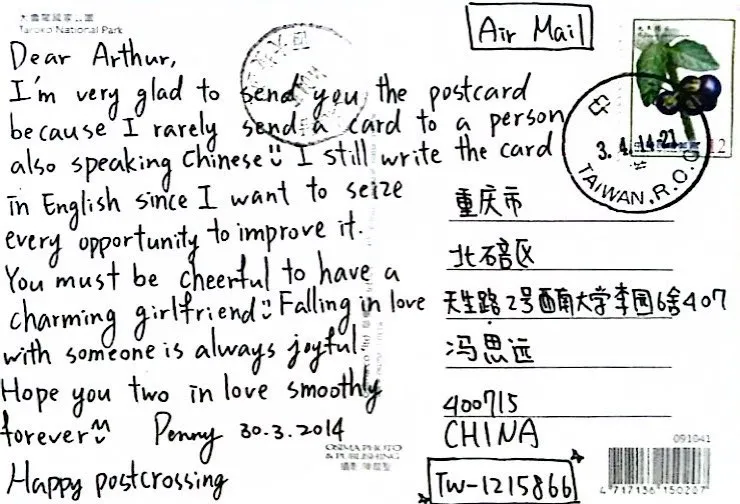 太魯閣國家公園
Taroko National Park
Air Mail
Dear Arthur,
I'm very glad to send you the postcard
because I rarely send a card to a person
also speaking Chinese I still write the card
in English since I want to seize
every opportunity to improve it.
You must be cheerful to have a
charming girlfriend Falling in love
with someone is always joyful.
Hope you two in love smoothly
forever Penny 30.3.2014
Happy postcrossing
12
TAIWAN, R.O.C
重庆市
北碚区
天生路2号西南大学李园6舍407
冯思远
400715
CHINA
TW-1215866
OSIMA PHOTO
& PUBLISHING
091041
4 717136 150207